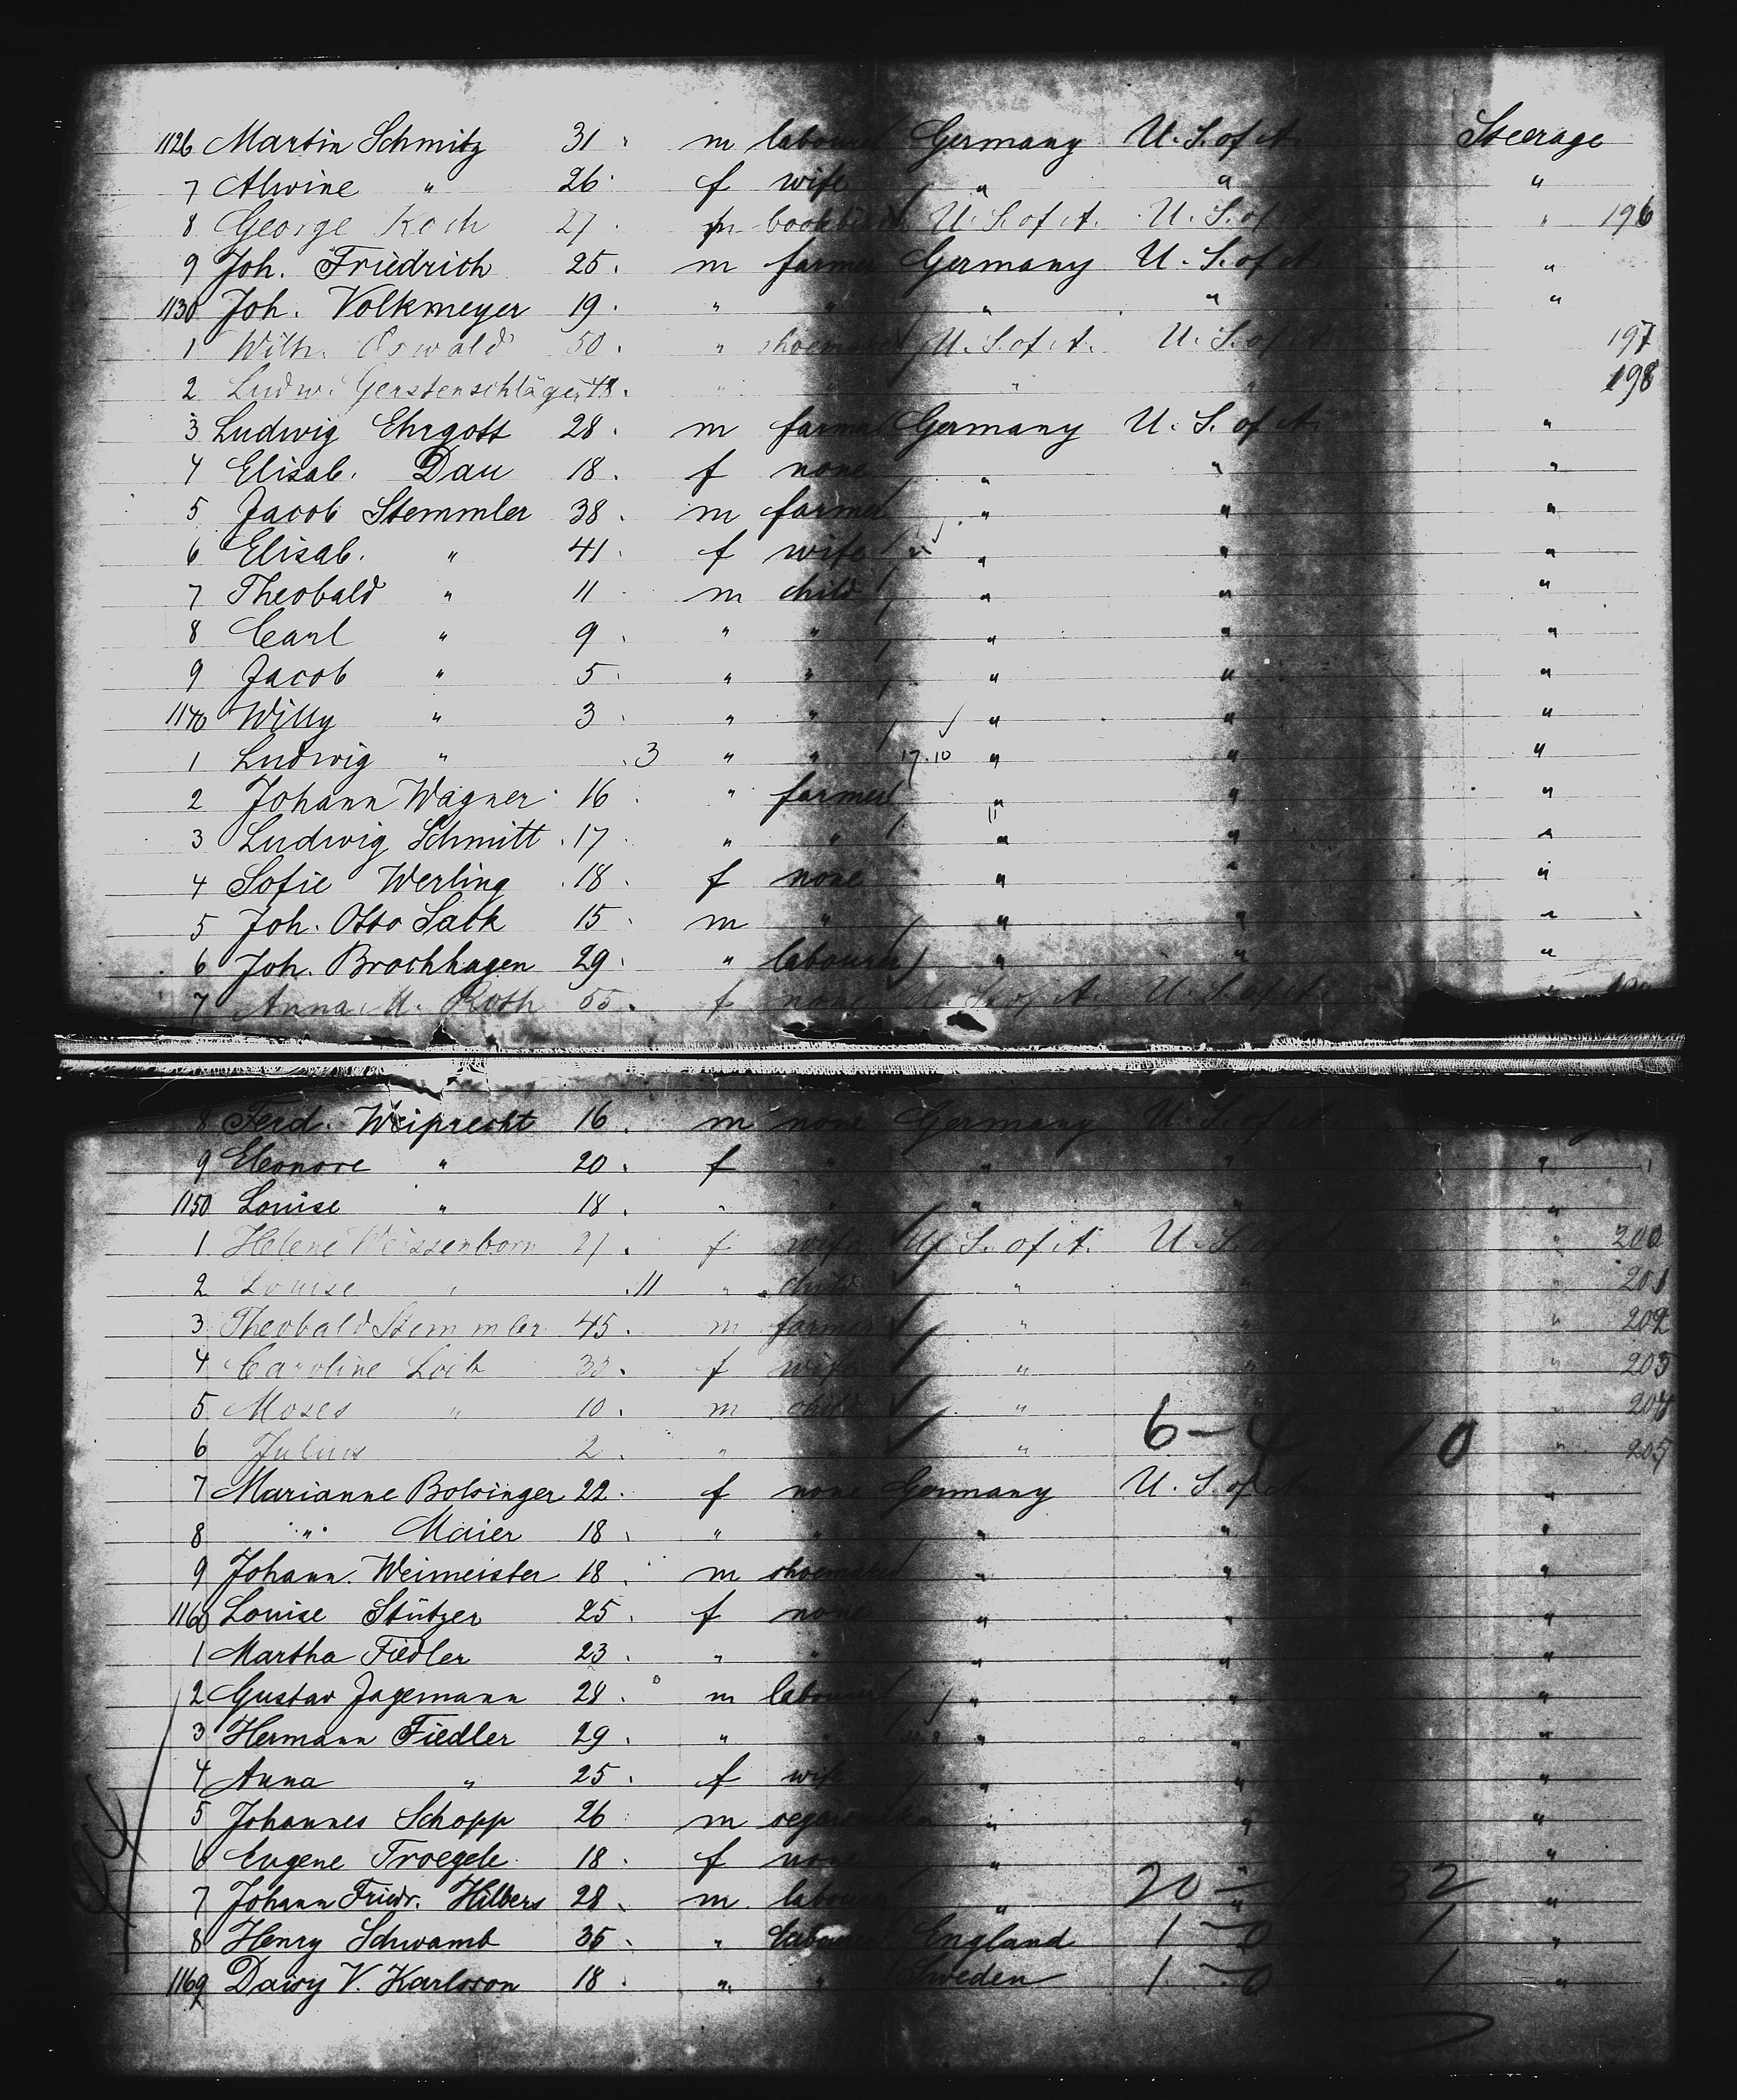 1126 Martin Schmitz 31 m labourer Germany U. S. of A. Steerage
7 Alwine " 26 f wife " " "
8 George Koch 27 m U. S. of A. U. S. of A. " 196
9 Joh. Friedrich 25 m farmer Germany U. S. of A. "
1130 Joh. Volkmeyer 19 " " " " "
1 Wilh. Oswald 50 " shoemaker U. S. of A. U. S. of A. 197
2 Ludw. Gerstenschläger 48 " " " " 198
3 Ludwig Ehrgott 28 m farmer Germany U. S. of A. "
4 Elisab. Dau 18 f none " " "
5 Jacob Stemmler 38 m farmer " " "
6 Elisab. " 41 f wife " " "
7 Theobald " 11 m child " " "
8 Carl " 9 " " " " "
9 Jacob " 5 " " " " "
1140 Willy " 3 " " " " "
1 Ludwig " .3 " " 17.10 " " "
2 Johann Wagner 16 " farmer " " "
3 Ludwig Schmitt 17 " " " " "
4 Sofie Werling 18 f none " " "
5 Joh. Otto 15 m " " " "
6 Joh. Brochhagen 29 " labourer " " "
7 Anna M. Roth 55 f none U. S. of A. U. S. of A. "
8 Ferd. Weiprecht 16 m none Germany U. S. of A.
9 Eleonore " 20 f " " " "
1150 Louise " 18 " " " " "
1 Helene Weissenborn 27 f wife U. S. of A. U. S. of A. " 200
2 Louise " .11 " child " " " 201
3 Theobald Stemmler 45 m farmer " " " 202
4 Caroline Loeb 33 f wife " " " 203
5 Moses " 10 m child " " " 204
6 Julius 2 " " 6-4 10 " 205
7 Marianne Bolsinger 22 f none Germany U. S. of Am "
8 " Maier 18 " " " " "
9 Johann Weimeister 18 m shoemaker " " "
1160 Louise Stützer 25 f none " " "
1 Martha Fiedler 23 " " " " "
2 Gustav Jagemann 28 m labourer " " "
3 Hermann Fiedler 29 " " " " "
4 Anna " 25 f wife " " "
5 Johannes Schopp 26 m " " "
6 Eugene Troegele 18 f none " " "
7 Johann Friedr. Hilbers 28 m labourer " 20 - 12 32 "
8 Henry Schwamb 35 " labourer England 1 - 0 1 "
1169 Daisy V. Karlsson 18 " " Sweden 1 - 0 1 "